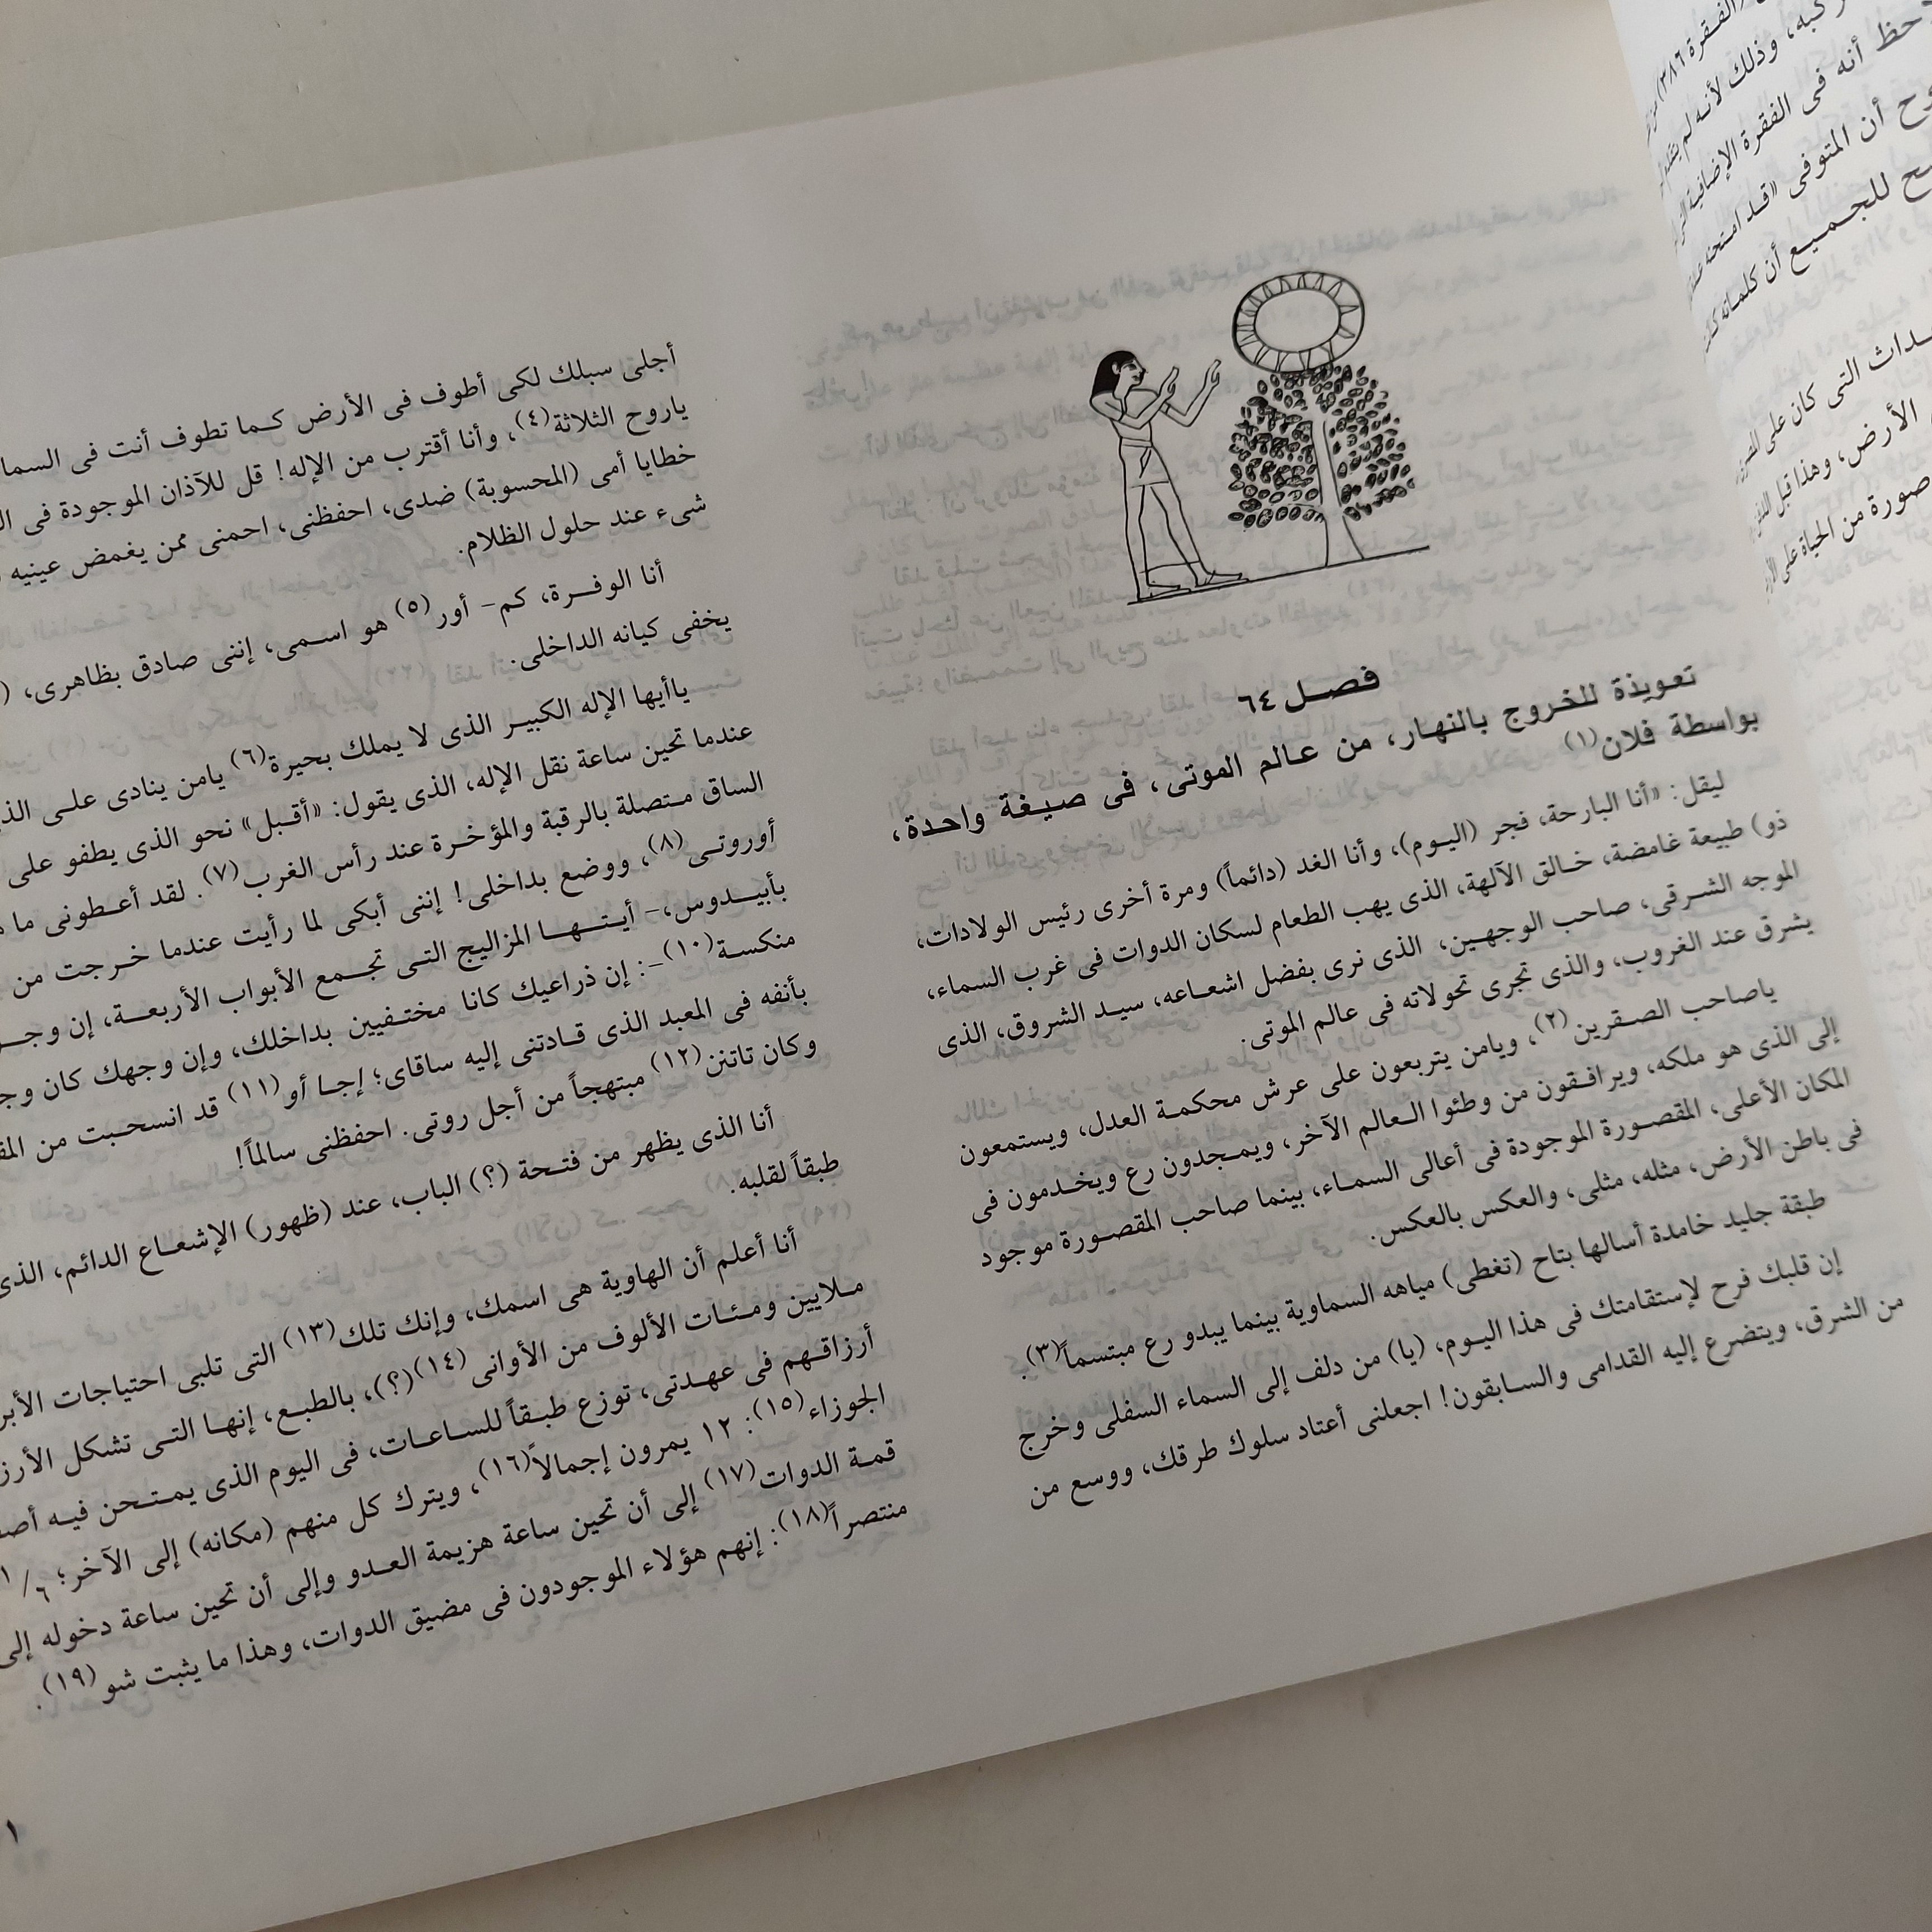 الفقرة ٣٨٦)
وذلك لأنه لم
أنه فى الفقرة الإضافية
أن المتوفى «قد امتحنه
للجميع أن كلماته
التى كان على
الأرض، وهذا قبل
صورة من الحياة على
فصل ٦٤
تعويذة للخروج بالنهار، من عالم الموتى، فى صيغة واحدة،
بواسطة فلان(١)
ليقل: «أنا البارحة، فجر (اليوم)، وأنا الغد (دائماً) ومرة أخرى رئيس الولادات،
ذو) طبيعة غامضة، خالق الآلهة، الذى يهب الطعام لسكان الدوات فى غرب السماء،
الموجه الشرقى، صاحب الوجهين، الذى نرى بفضل اشعاعه، سيد الشروق، الذى
يشرق عند الغروب، والذى تجرى تحولاته فى عالم الموتى.
ياصاحب الصقرين(٢)، ويامن يتربعون على عرش محكمة العدل، ويستمعون
إلى الذى هو ملكه، ويرافقون من وطئوا العالم الآخر، ويمجدون رع ويخدمون فى
المكان الأعلى، المقصورة الموجودة فى أعالى السماء، بينما صاحب المقصورة موجود
فى باطن الأرض، مثله، مثلى، والعكس بالعكس.
طبقة جليد خامدة أسالها بتاح (تغطى) مياهه السماوية بينما يبدو رع مبتسماً(٣).
إن قلبك فرح لإستقامتك فى هذا اليوم، (يا) من دلف إلى السماء السفلى وخرج
من الشرق، ويتضرع إليه القدامى والسابقون! اجعلنى أعتاد سلوك طرقك، ووسع من
أجلى سبلك لكى أطوف فى الأرض كما تطوف أنت فى
ياروح الثلاثة(٤)، وأنا أقترب من الإله! قل للآذان الموجودة فى
خطايا أمى (المحسوبة) ضدى، احفظنى، احمنى ممن يغمض عينيه
شىء عند حلول الظلام.
أنا الوفرة، كم- أور(٥) هو اسمى، إننى صادق بظاهرى، (
يخفى كيانه الداخلى.
ياأيها الإله الكبير الذى لا يملك بحيرة(٦) يامن ينادى على
عندما تحين ساعة نقل الإله، الذى يقول: «أقبل» نحو الذى يطفو على
الساق متصلة بالرقبة والمؤخرة عند رأس الغرب(٧). لقد أعطونى ما
أوروتى(٨)، ووضع بداخلى! إننى أبكى لما رأيت عندما خرجت من
بأبيدوس،- أيتها المزاليج التى تجمع الأبواب الأربعة، إن
منكسة(١٠)-: إن ذراعيك كانا مختفيين بداخلك، وإن وجهك كان
بأنفه فى المعبد الذى قادتنى إليه ساقاى؛ إجا أو(١١) قد انسحبت من
وكان تاتنن(١٢) مبتهجاً من أجل روتى. احفظنى سالماً!
أنا الذى يظهر من فتحة (؟) الباب، عند (ظهور) الإشعاع الدائم، الذى
طبقاً لقلبه.
أنا أعلم أن الهاوية هى اسمك، وإنك تلك(١٣) التى تلبى احتياجات
ملايين ومئات الألوف من الأوانى(١٤)(؟)، بالطبع، إنها التى تشكل
أرزاقهم فى عهدتى، توزع طبقاً للساعات، فى اليوم الذى يمتحن فيه
الجوزاء(١٥): ١٢ يمرون إجمالاً(١٦)، ويترك كل منهم (مكانه) إلى الآخر؛ ١/٦
قمة الدوات(١٧) إلى أن تحين ساعة هزيمة العدو وإلى أن تحين ساعة دخوله إلى
منتصراً(١٨): إنهم هؤلاء الموجودون فى مضيق الدوات، وهذا ما يثبت شو(١٩).
١